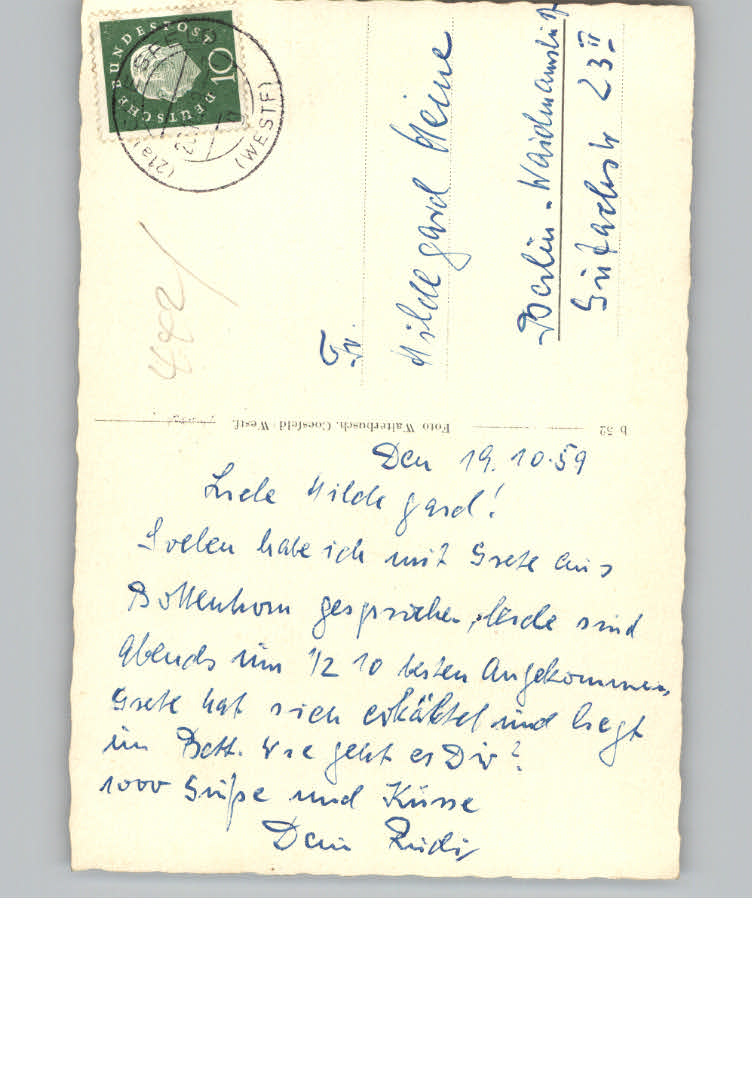 DEUTSCHE BUNDESPOST
10
(21a)
(WESTF)
442
Fr.
Hildegard Heine
Berlin-Waidmannslust
23 II
b 52
Foto Walterbusch, Coesfeld Westf.
Den 19.10.59
Liebe Hildegard!
Soeben habe ich mit Grete aus
Bottenhorn gesprochen, beide sind
Abends um 1/2 10 besten Angekommen,
Grete hat sich erkältet und liegt
im Bett. Wie geht es Dir?
1000 Grüße und Küsse
Dein Rudi